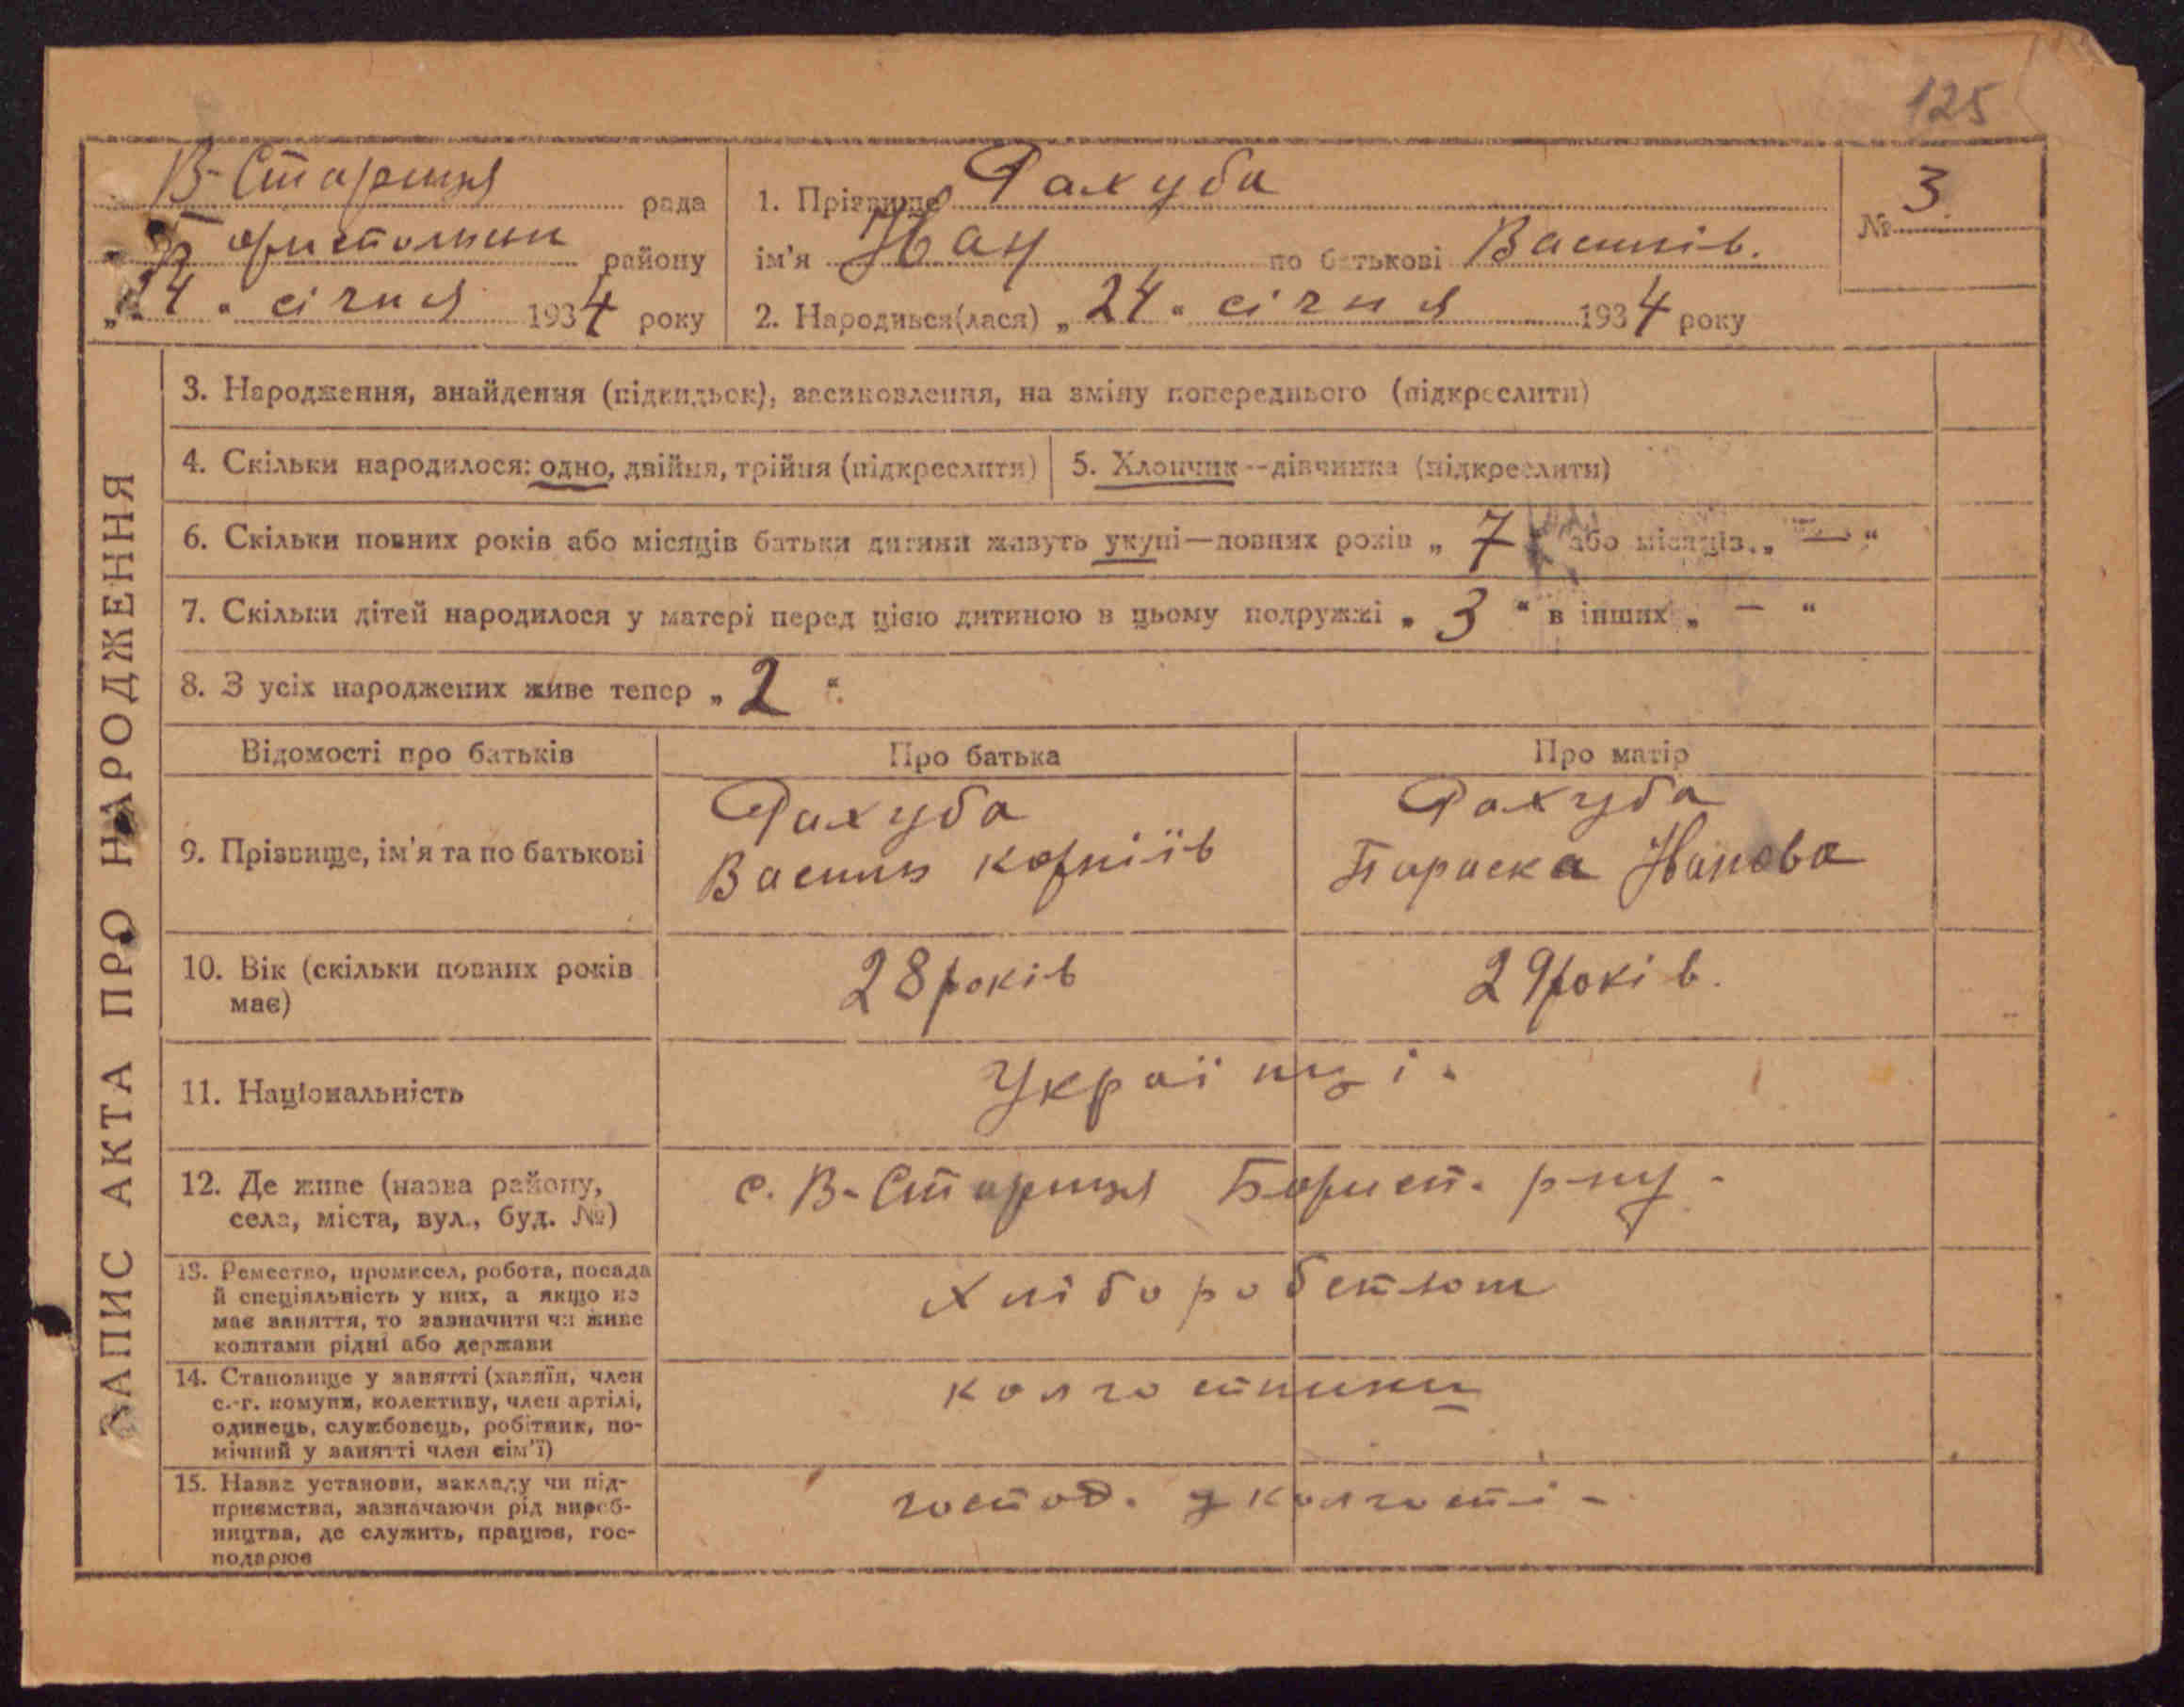 125
В-Стариця рада
Бориспольськ району
„24“ січня 1934 року
1. Прізвище Рахуба
ім'я Іван по батькові Василів.
2. Народився(лася) „24“ січня 1934 року
№ 3
ЗАПИС АКТА ПРО НАРОДЖЕННЯ
3. Народження, знайдення (підкидьок), засиновлення, на зміну попереднього (підкреслити)
4. Скільки народилося: одно, двійня, трійня (підкреслити)
5. Хлопчик—дівчинка (підкреслити)
6. Скільки повних років або місяців батьки дитини живуть укупі—повних років „7“ або місяців „—“
7. Скільки дітей народилося у матері перед цією дитиною в цьому подружжі „3“ в інших „—“
8. З усіх народжених живе тепер „2“.
Відомості про батьків Про батька Про матір
9. Прізвище, ім'я та по батькові
Рахуба
Василь Корніїв
Рахуба
Параска Іванова
10. Вік (скільки повних років
має)
28 років
29 років.
11. Національність
Українці.
12. Де живе (назва району,
села, міста, вул., буд. №)
с. В-Стариця Борисп. р-ну -
13. Ремество, промисел, робота, посада
й спеціяльність у них, а якщо не
має заняття, то зазначити чи живе
коштами рідні або держави
хліборобством
14. Становище у занятті (хазяїн, член
с.-г. комуни, колективу, член артілі,
одинець, службовець, робітник, по-
мічний у занятті член сім'ї)
колгоспники
15. Назва установи, закладу чи під-
приємства, зазначаючи рід вироб-
ництва, де служить, працює, гос-
подарює
господ. у колгоспі -